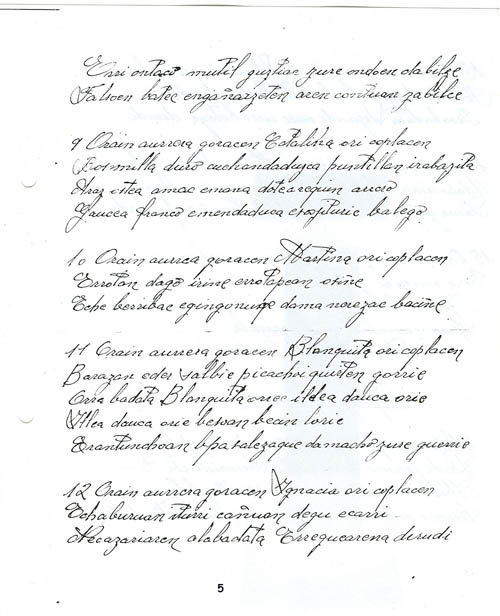 Erri ontaco mutil guztiac zure ondoen dabilze
Falsoen batec engañaizeten aren contuan zabilce
9 Orain aurrera goracen Catalina ori coplacen
Bosmilla duro cuchandaduzca puntillan irabazita
Araz ostea amac emana dotearequin aurcio
Gaucea franco emendaduca esozturic balego
10 Orain aurrea goracen Martina ori coplacen
Errotan dago irine errotapean osiñe
Eche berribac egingonuzqe dama norezac baciñe
11 Orain aurrera goracen Blanquita ori coplacen
Barazan eder salbie picachoi guisten gorrie
Orra badata Blanquita orrec illea dauca orie
Illea dauca orie besoan becin lorie
Erantundnoan bpa salezaque damacho zure guerrie
12 Orain aurrera goracen Ignacia ori coplacen
Echaburuan iturri cañuan degu ecarri
Necazariaren alabadata Erreguearena dirudi
5